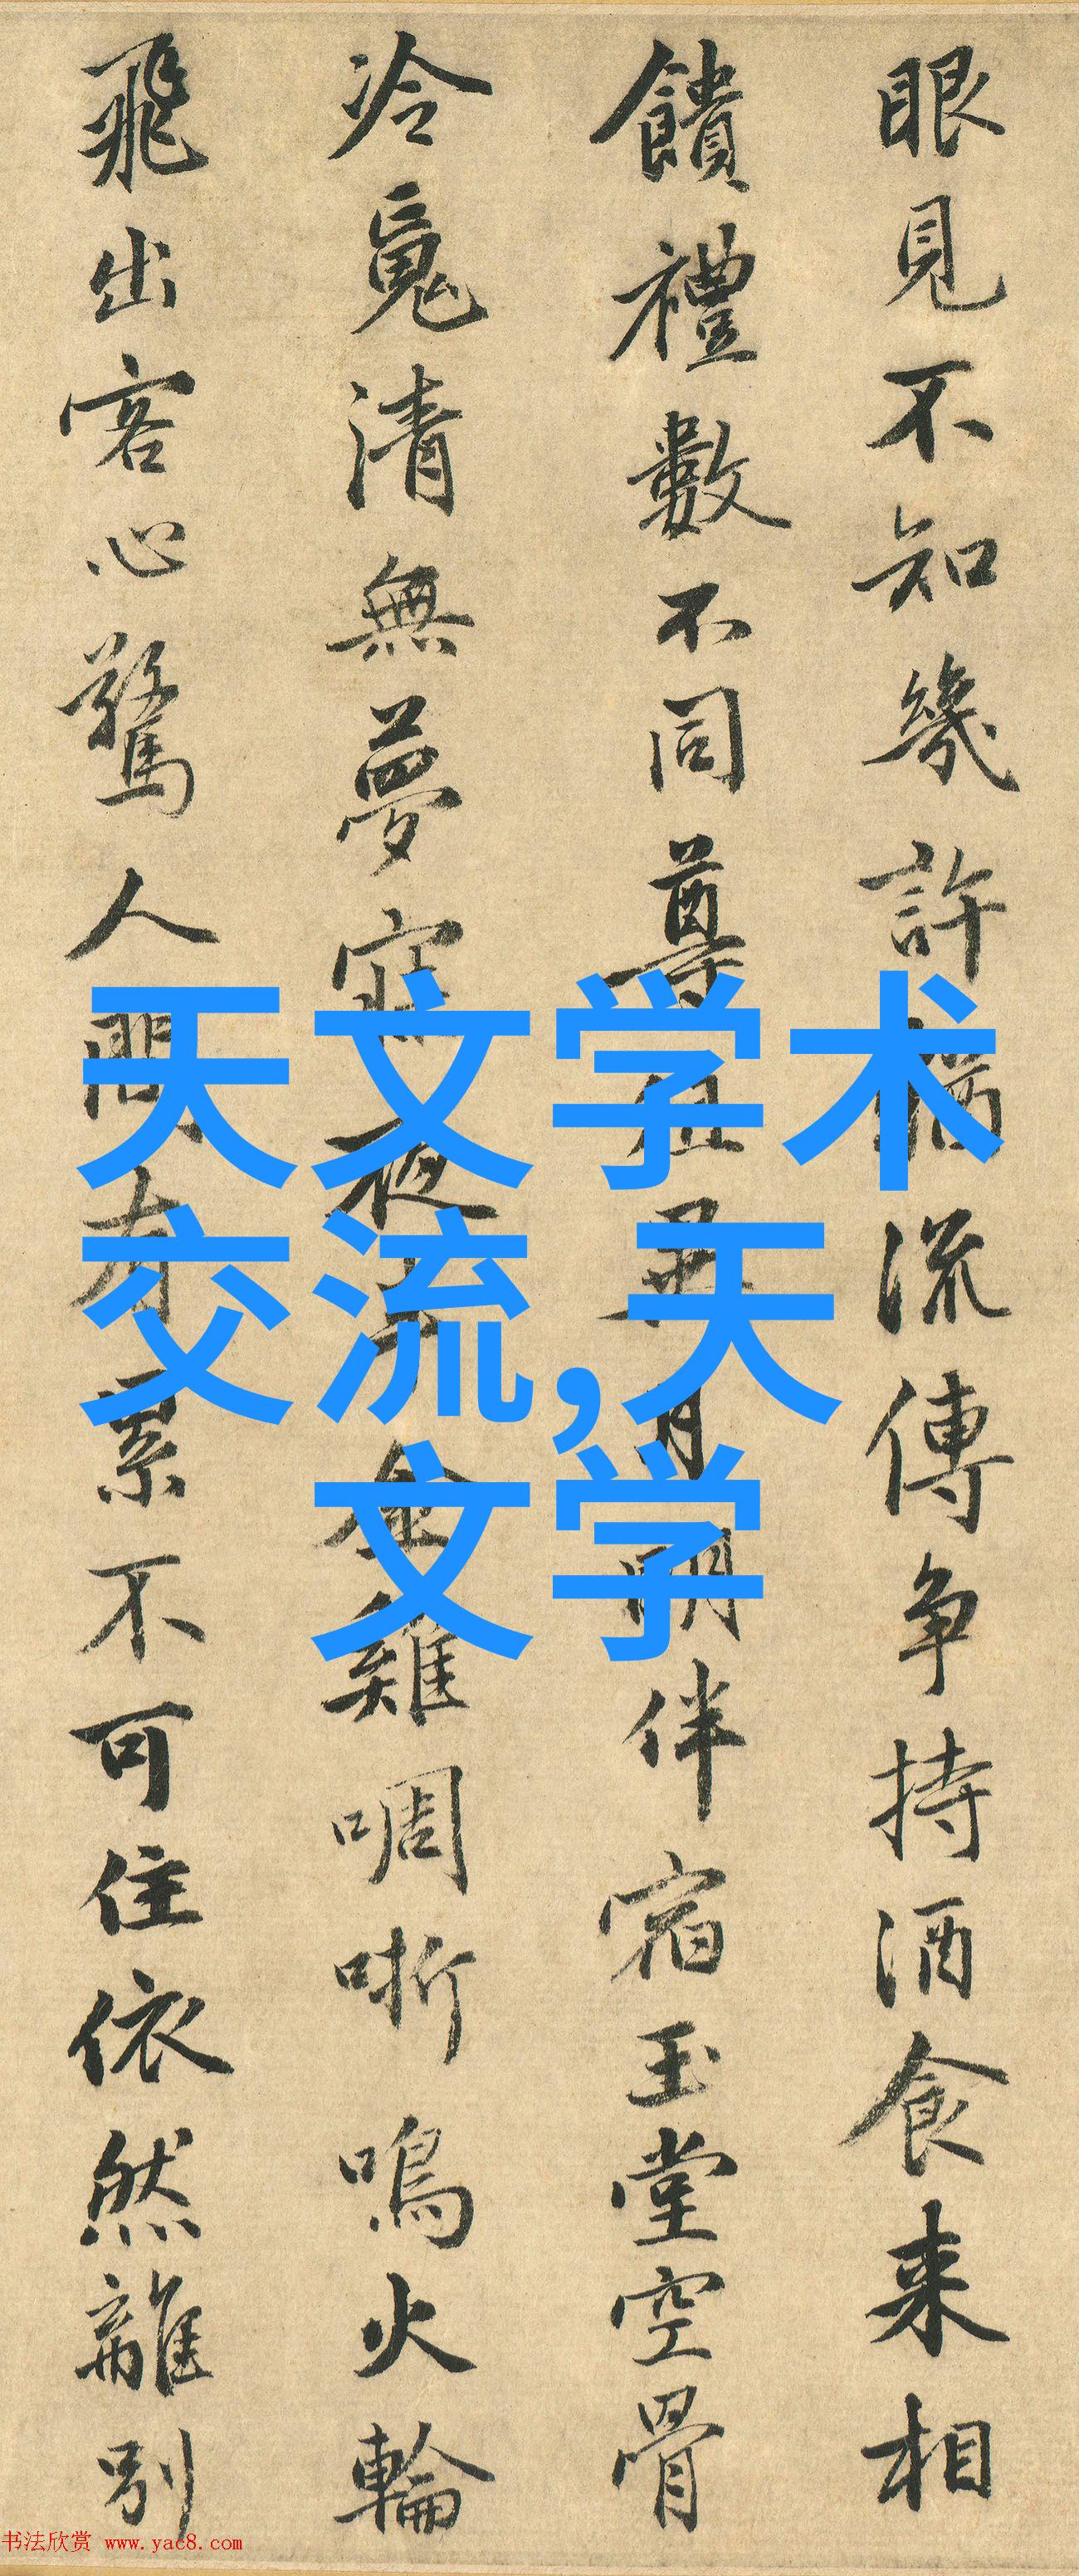 眼見不知幾許猶流傳爭持酒食来相
饋禮數不同尊俎異月明伴宿玉堂空骨
冷䰟清無夢寐夜金雞啁哳鳴火輪
飛出客心驚人間有累不可住依然離別
天文学术
交流,天
文学
书法欣赏 www.yac8.com